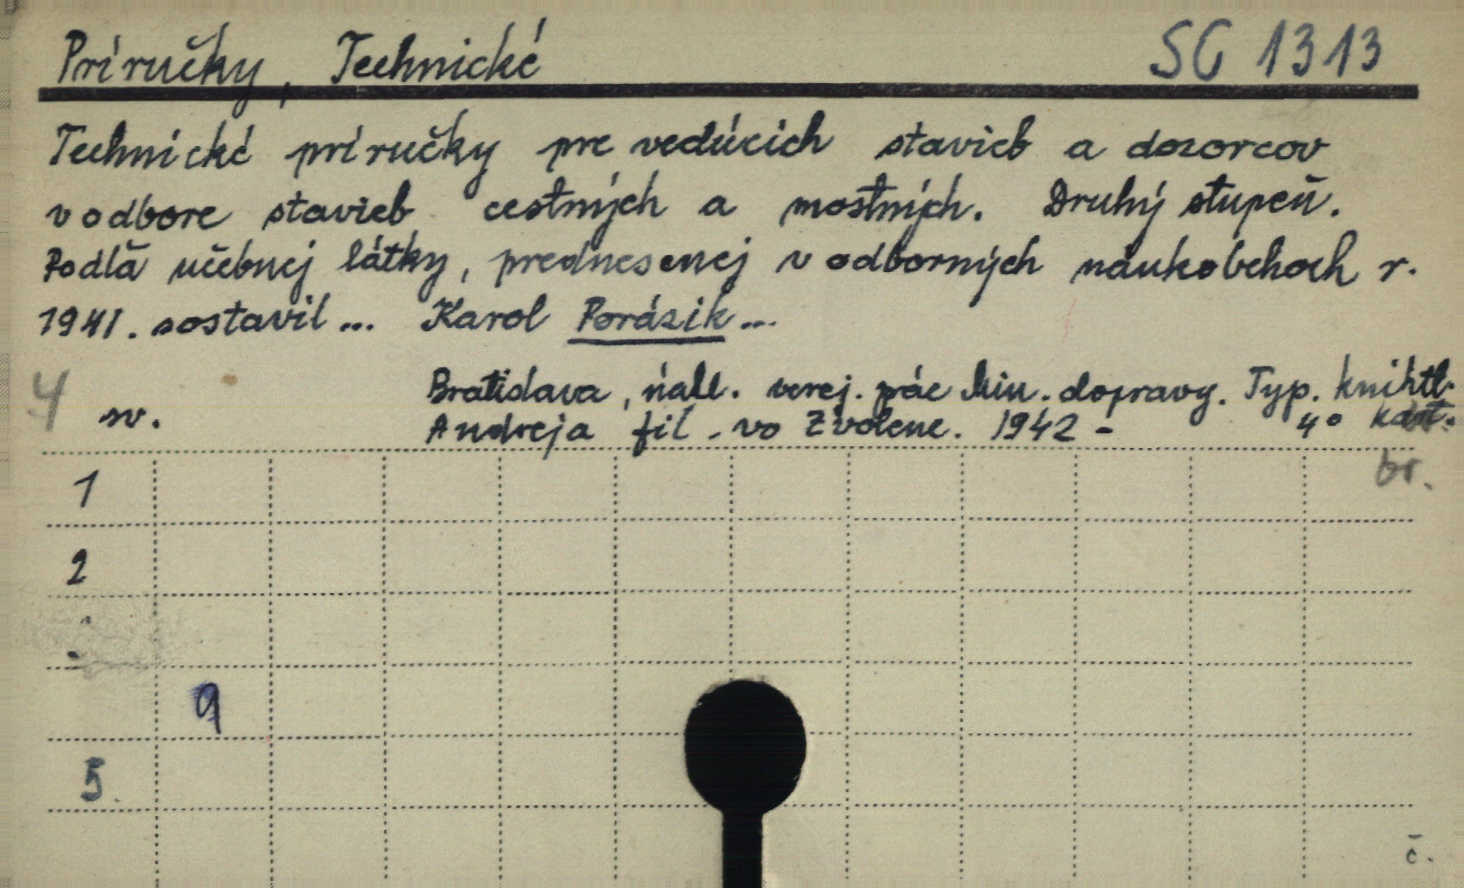 Príručky, Technické SC 1313
Technické príručky pre vedúcich stavieb a dozorcov
v odbore stavieb cestných a mostných. Druhý stupeň.
Podľa učebnej látky, prednesenej v odborných náukobehoch r.
1941. sostavil... Karol Porázik...
4 sv. Bratislava, nákl. verej. prác Min. dopravy. Typ. kníhtl.
Andreja fil. vo Zvolene. 1942 - 4° kart.
br.
1
2
9
5.
č.